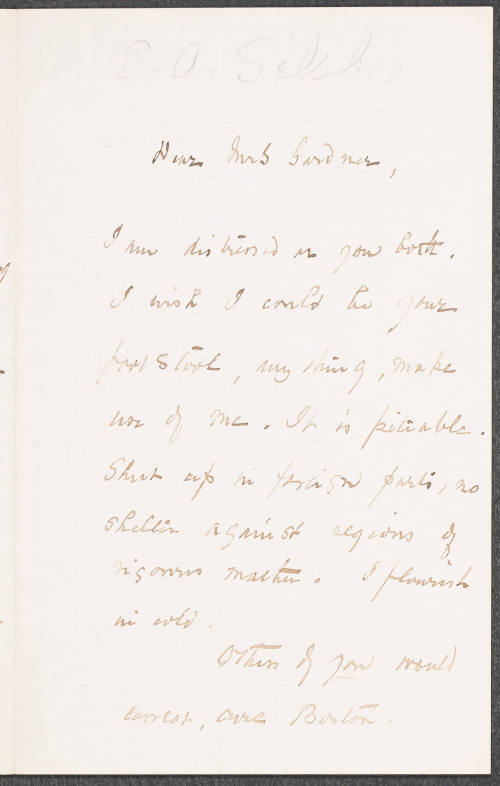 E. A. Silsbee
Dear Mrs Gardner,
I am distressed in you both.
I wish I could be your
foot stool, any thing, make
use of me. It is pitiable.
Shut up in foreign parts, no
shelter against legions of
rigorous matter. I flourish
in cold.
Others of you would
correct, cure Boston.